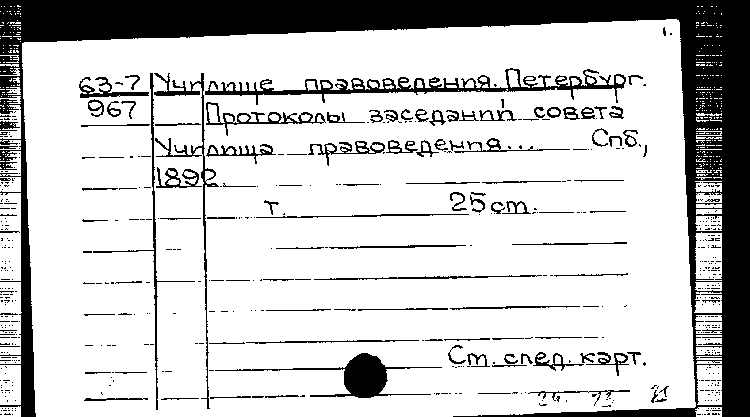 1.
63-7 Училище правоведения. Петербург.
967 Протоколы заседаний совета
Училища правоведения... Спб.,
1892.
т. 25 cm.
Ст. след. карт.